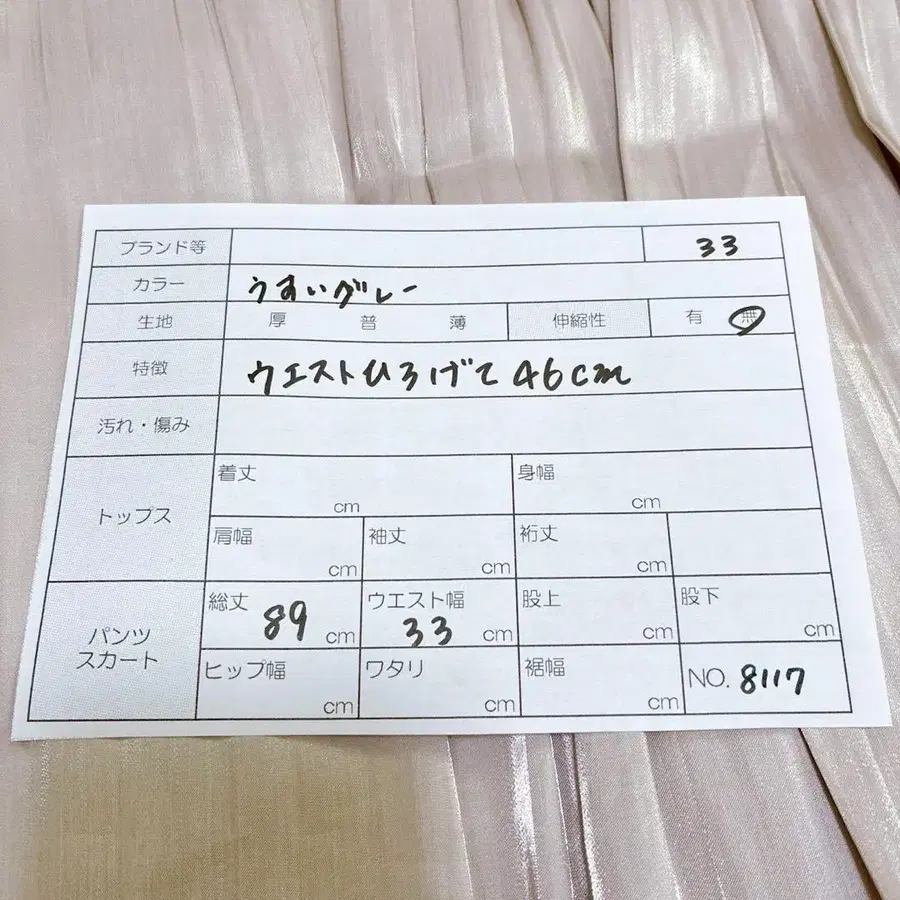 ブランド等 33
カラー うすいグレー
生地 厚 普 薄 伸縮性 有 無
特徴 ウエストひろげて46cm
汚れ・傷み
トップス
着丈 cm 身幅 cm
肩幅 cm 袖丈 cm 裄丈 cm
パンツ
スカート
総丈 89 cm ウエスト幅 33 cm 股上 cm 股下 cm
ヒップ幅 cm ワタリ cm 裾幅 cm NO. 8117